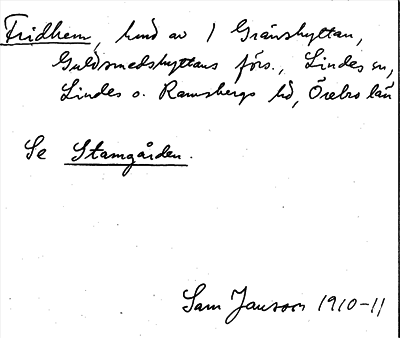 Fridhem, hmd av 1 Gränshyttan,
Guldsmedshyttans förs., Lindes sn,
Lindes o. Ramsbergs hd, Örebro län
Se Stamgården.
Sam Jansson 1910-11